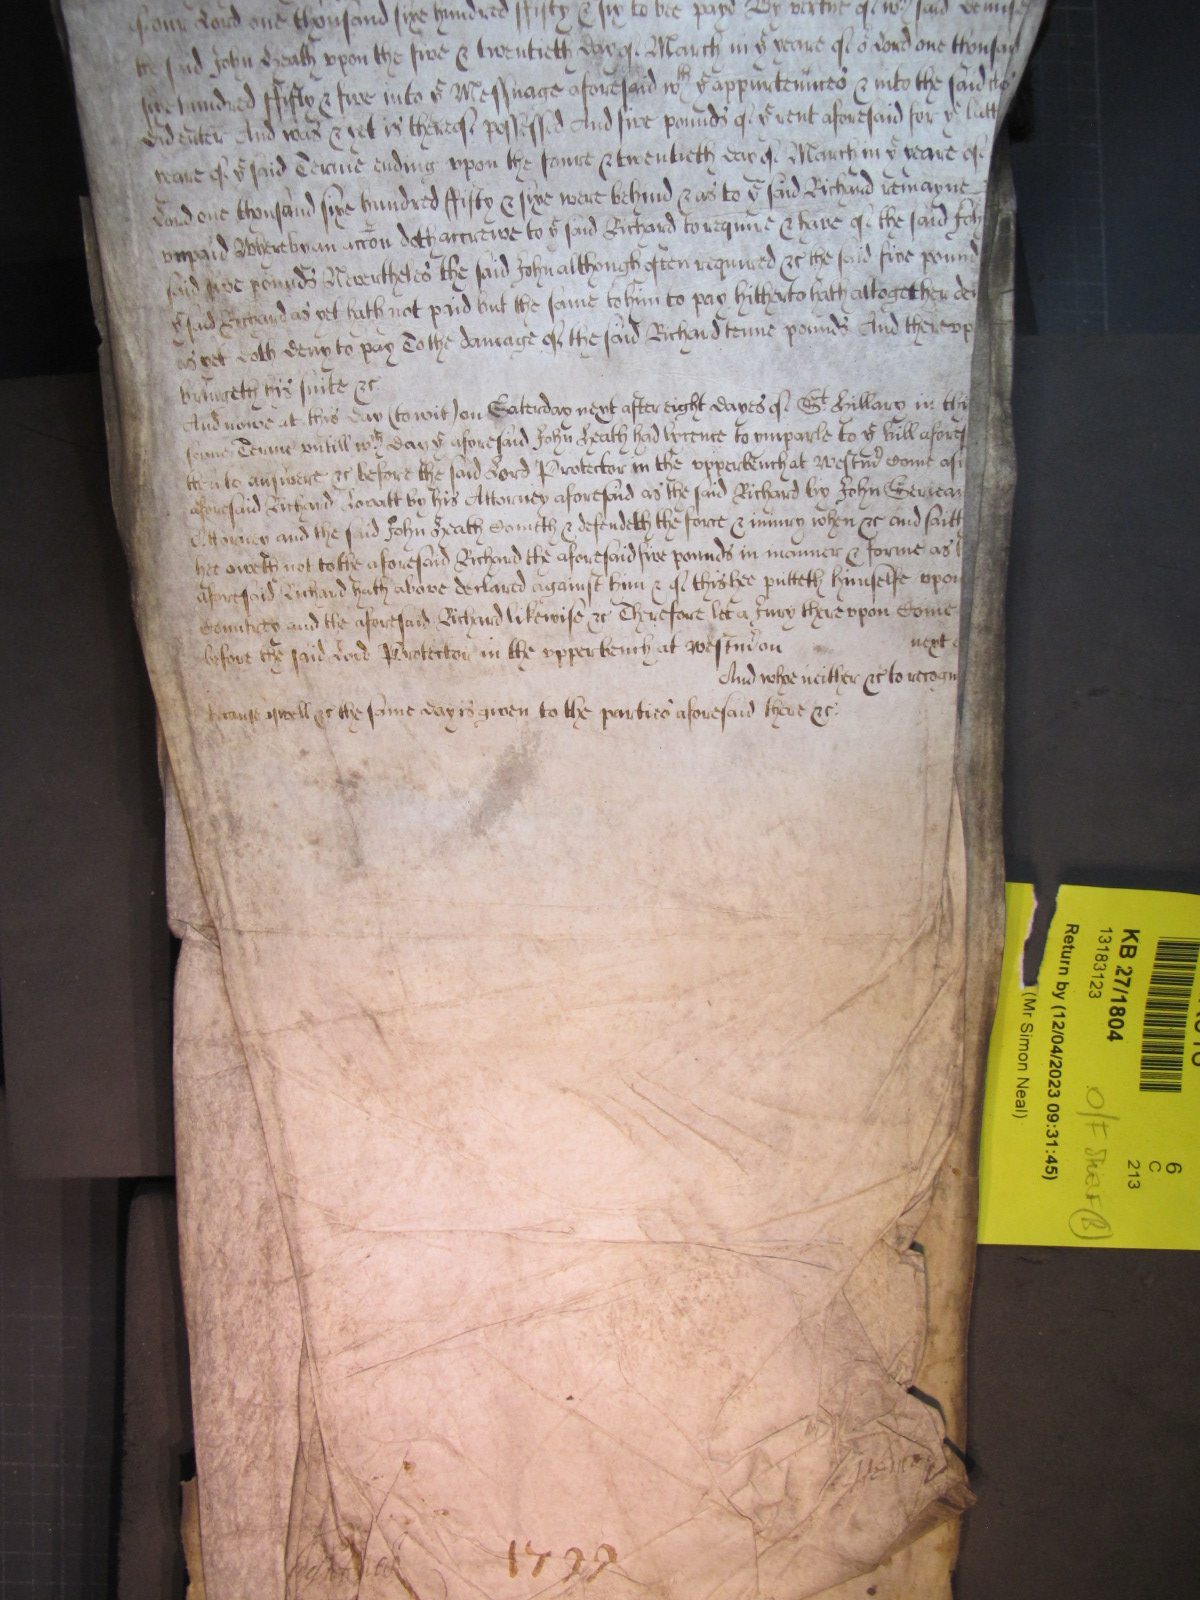 of our Lord one thousand sixe hundred ffifty & six to bee payd By vertue of wch said demise
the said John Heath upon the five & twentieth day of March in ye yeare of or Lord one thousand
sixe hundred ffifty & five into ye Messuage aforesaid wth ye appurtenances & into the said
did enter And was & yet is thereof possessed And five pounds of ye rent aforesaid for ye last
yeare of ye said Terme ending upon the foure & twentieth day of March in ye yeare of
Lord one thousand sixe hundred ffifty & sixe were behind & as to ye said Richard remayne
unpaid Whereby an accon doth accrewe to ye said Richard to require & have of the said John
said five pounds Nevertheles the said John although often required &c the said five pound
ye said Richard as yet hath not paid but the same to him to pay hitherto hath altogether den
as yet doth deny to pay To the damage of the said Richard tenne pounds And thereup
bringeth his suite &c
And nowe at this day (to wit) on Saterday next after eight dayes of St Hillary in this
same Terme untill wch day ye aforesaid John Heath had lycence to imparle to ye bill afores
then to answere &c before the said Lord Protector in the upperbench at Westmr Come as
aforesaid Richard by his Attorney aforesaid as the said Richard by John
Attorney and the said John Heath Cometh & defendeth the force & iniury when &c and saith
hee oweth not to the aforesaid Richard the aforesaid five pounds in manner & forme as
aforesaid Richard hath above declared against him & of this hee putteth himselfe upon
Countrey and the aforesaid Richard likewise &c Therefore let a Jury thereupon Come
before the said Lord Protector in the upperbench at Westmr on next
And whoe neither &c to recogn
because aswell &c the same day is given to the parties aforesaid there &c
KB 27/1804
13183123
Return by (12/04/2023 09:31:45)
(Mr Simon Neal)
6
C
213